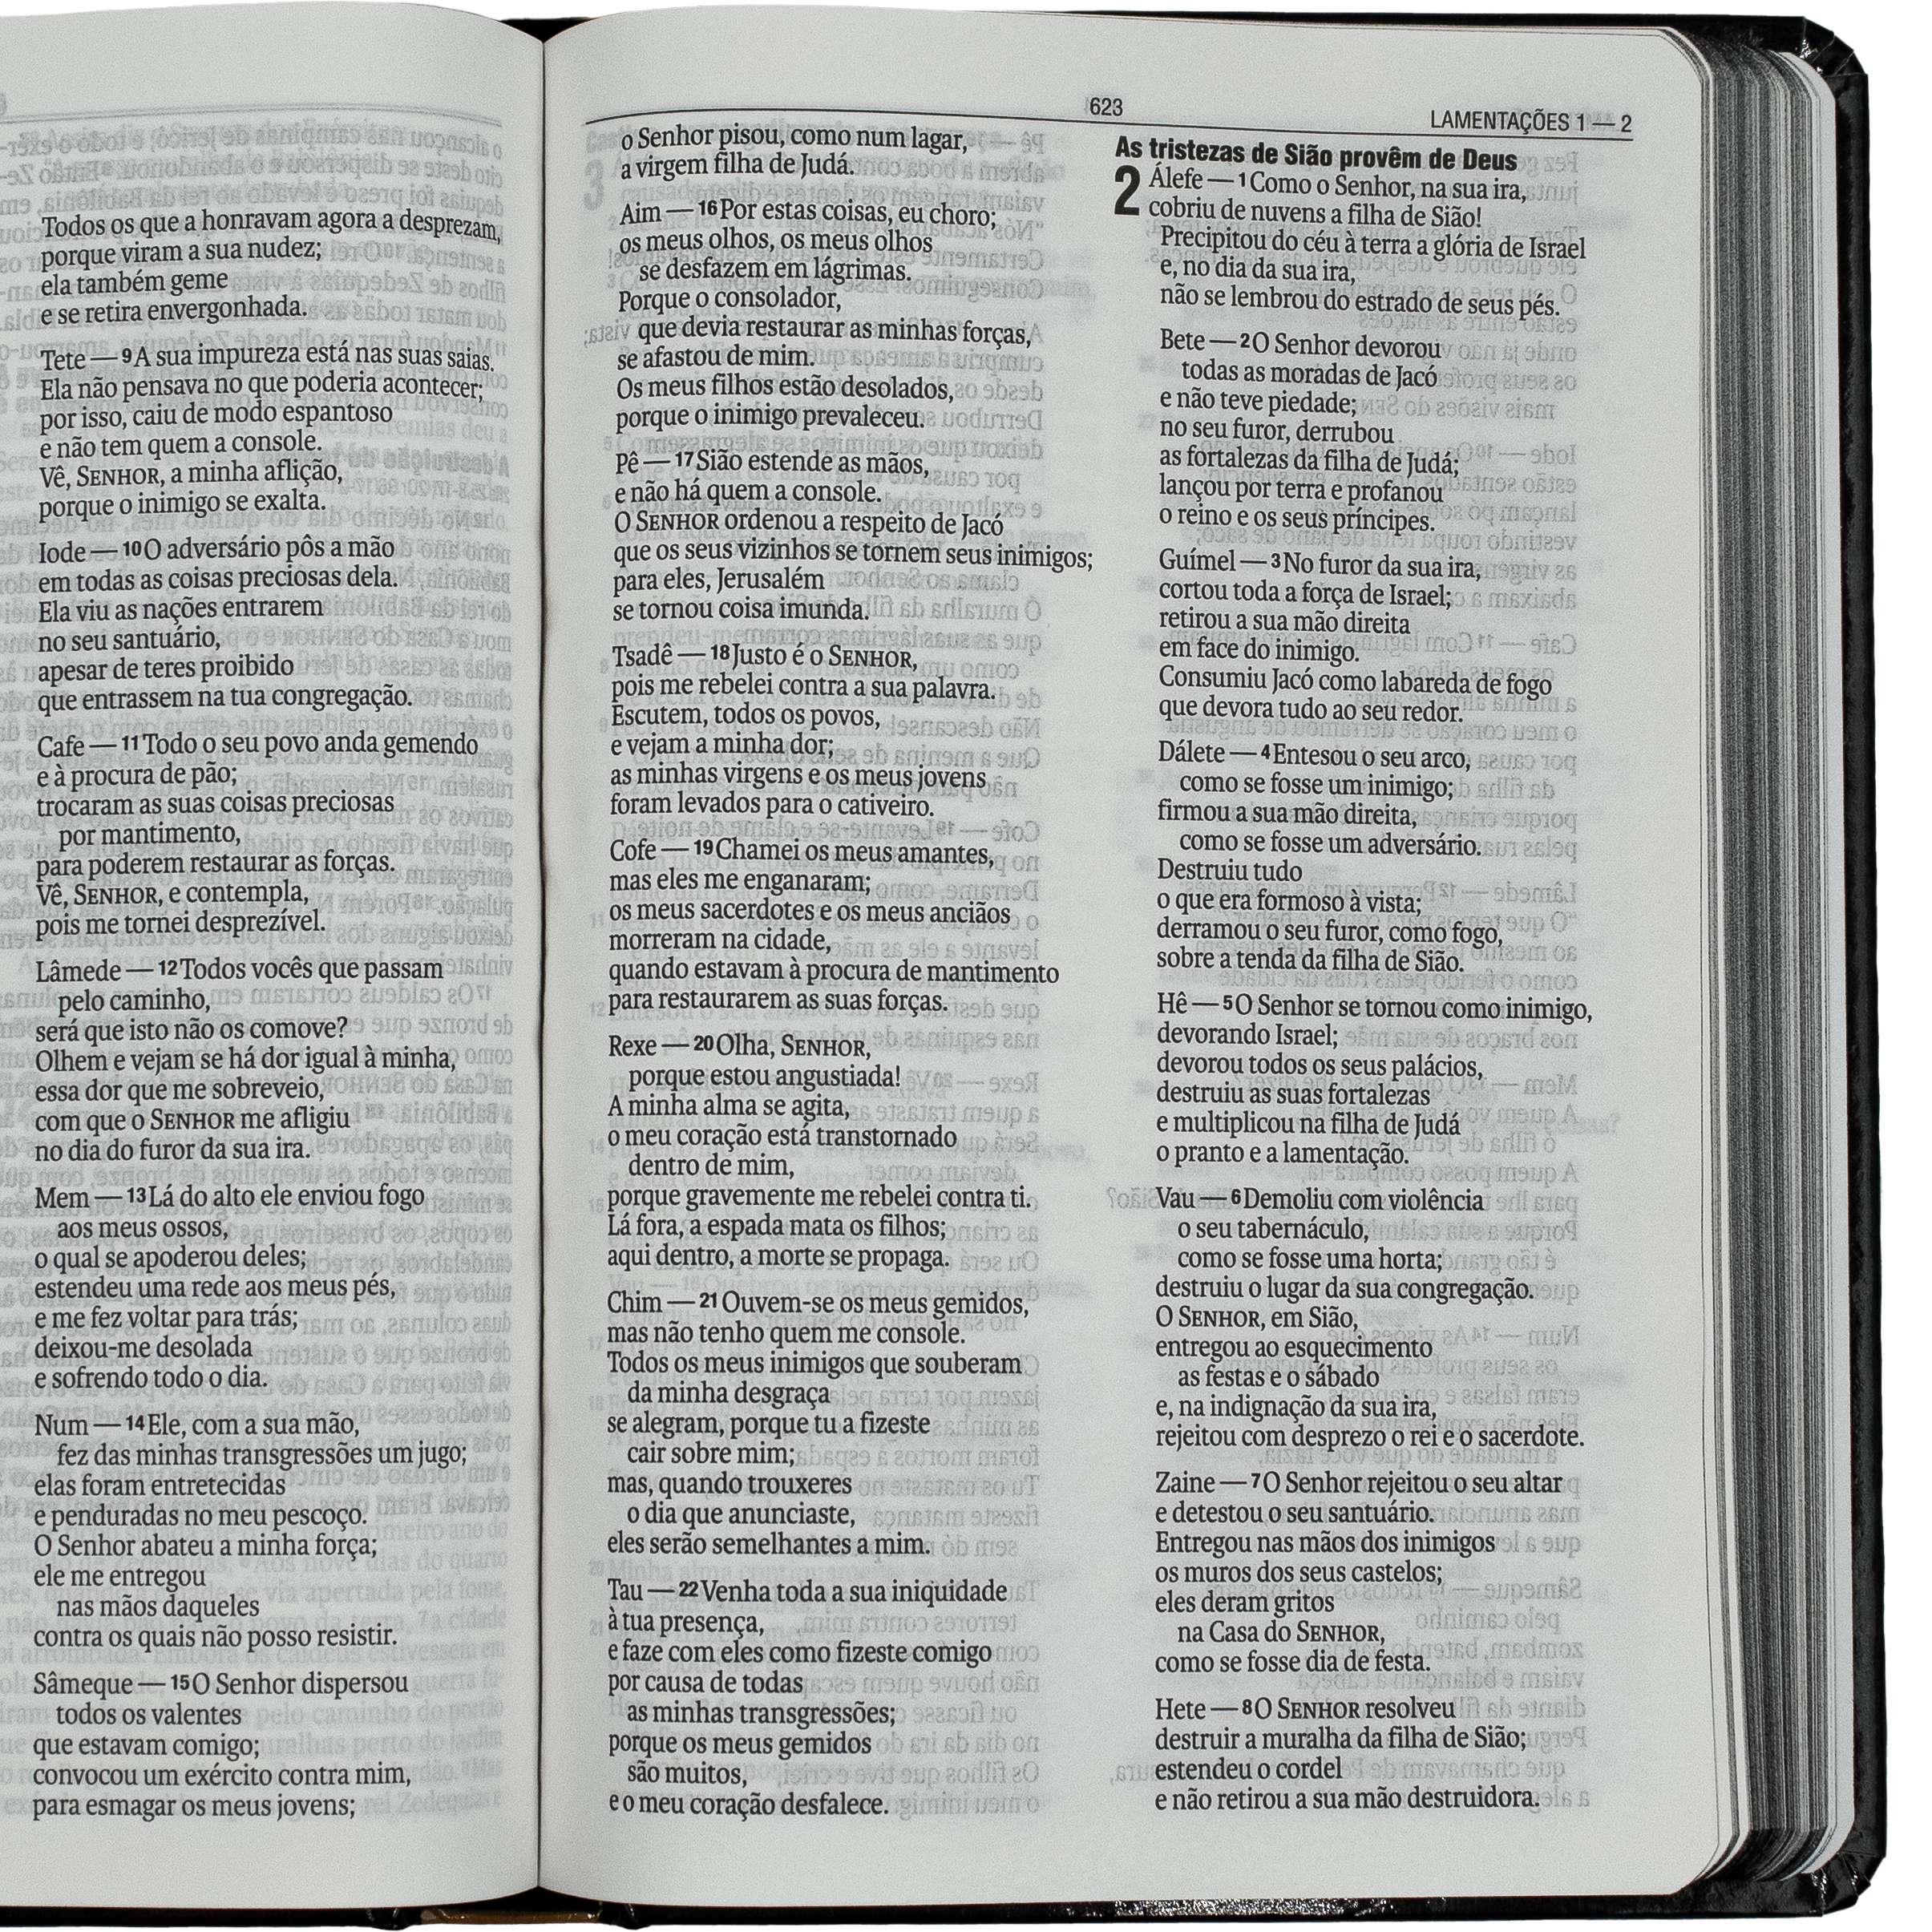 Todos os que a honravam agora a desprezam,
porque viram a sua nudez;
ela também geme
e se retira envergonhada.
Tete — 9 A sua impureza está nas suas saias.
Ela não pensava no que poderia acontecer;
por isso, caiu de modo espantoso
e não tem quem a console.
Vê, SENHOR, a minha aflição,
porque o inimigo se exalta.
Iode — 10 O adversário pôs a mão
em todas as coisas preciosas dela.
Ela viu as nações entrarem
no seu santuário,
apesar de teres proibido
que entrassem na tua congregação.
Cafe — 11 Todo o seu povo anda gemendo
e à procura de pão;
trocaram as suas coisas preciosas
por mantimento,
para poderem restaurar as forças.
Vê, SENHOR, e contempla,
pois me tornei desprezível.
Lâmede — 12 Todos vocês que passam
pelo caminho,
será que isto não os comove?
Olhem e vejam se há dor igual à minha,
essa dor que me sobreveio,
com que o SENHOR me afligiu
no dia do furor da sua ira.
Mem — 13 Lá do alto ele enviou fogo
aos meus ossos,
o qual se apoderou deles;
estendeu uma rede aos meus pés,
e me fez voltar para trás,
deixou-me desolada
e sofrendo todo o dia.
Num — 14 Ele, com a sua mão,
fez das minhas transgressões um jugo;
elas foram entretecidas
e penduradas no meu pescoço.
O Senhor abateu a minha força;
ele me entregou
nas mãos daqueles
contra os quais não posso resistir.
Sâmeque — 15 O Senhor dispersou
todos os valentes
que estavam comigo;
convocou um exército contra mim,
para esmagar os meus jovens;
623
LAMENTAÇÕES 1 — 2
o Senhor pisou, como num lagar,
a virgem filha de Judá.
Aim — 16 Por estas coisas, eu choro;
os meus olhos, os meus olhos
se desfazem em lágrimas.
Porque o consolador,
que devia restaurar as minhas forças,
se afastou de mim.
Os meus filhos estão desolados,
porque o inimigo prevaleceu.
Pê — 17 Sião estende as mãos,
e não há quem a console.
O SENHOR ordenou a respeito de Jacó
que os seus vizinhos se tornem seus inimigos;
para eles, Jerusalém
se tornou coisa imunda.
Tsadê — 18 Justo é o SENHOR,
pois me rebelei contra a sua palavra.
Escutem, todos os povos,
e vejam a minha dor;
as minhas virgens e os meus jovens
foram levados para o cativeiro.
Cofe — 19 Chamei os meus amantes,
mas eles me enganaram;
os meus sacerdotes e os meus anciãos
morreram na cidade,
quando estavam à procura de mantimento
para restaurarem as suas forças.
Rexe — 20 Olha, SENHOR,
porque estou angustiada!
A minha alma se agita,
o meu coração está transtornado
dentro de mim,
porque gravemente me rebelei contra ti.
Lá fora, a espada mata os filhos;
aqui dentro, a morte se propaga.
Chim — 21 Ouvem-se os meus gemidos,
mas não tenho quem me console.
Todos os meus inimigos que souberam
da minha desgraça
se alegram, porque tu a fizeste
cair sobre mim;
mas, quando trouxeres
o dia que anunciaste,
eles serão semelhantes a mim.
Tau — 22 Venha toda a sua iniquidade
à tua presença,
e faze com eles como fizeste comigo
por causa de todas
as minhas transgressões;
porque os meus gemidos
são muitos,
e o meu coração desfalece.
As tristezas de Sião provêm de Deus
2 Álefe — 1 Como o Senhor, na sua ira,
cobriu de nuvens a filha de Sião!
Precipitou do céu à terra a glória de Israel
e, no dia da sua ira,
não se lembrou do estrado de seus pés.
Bete — 2 O Senhor devorou
todas as moradas de Jacó
e não teve piedade;
no seu furor, derrubou
as fortalezas da filha de Judá;
lançou por terra e profanou
o reino e os seus príncipes.
Guímel — 3 No furor da sua ira,
cortou toda a força de Israel;
retirou a sua mão direita
em face do inimigo.
Consumiu Jacó como labareda de fogo
que devora tudo ao seu redor.
Dálete — 4 Entesou o seu arco,
como se fosse um inimigo;
firmou a sua mão direita,
como se fosse um adversário.
Destruiu tudo
o que era formoso à vista;
derramou o seu furor, como fogo,
sobre a tenda da filha de Sião.
Hê — 5 O Senhor se tornou como inimigo,
devorando Israel;
devorou todos os seus palácios,
destruiu as suas fortalezas
e multiplicou na filha de Judá
o pranto e a lamentação.
Vau — 6 Demoliu com violência
o seu tabernáculo,
como se fosse uma horta;
destruiu o lugar da sua congregação.
O SENHOR, em Sião,
entregou ao esquecimento
as festas e o sábado
e, na indignação da sua ira,
rejeitou com desprezo o rei e o sacerdote.
Zaine — 7 O Senhor rejeitou o seu altar
e detestou o seu santuário.
Entregou nas mãos dos inimigos
os muros dos seus castelos;
eles deram gritos
na Casa do SENHOR,
como se fosse dia de festa.
Hete — 8 O SENHOR resolveu
destruir a muralha da filha de Sião;
estendeu o cordel
e não retirou a sua mão destruidora.